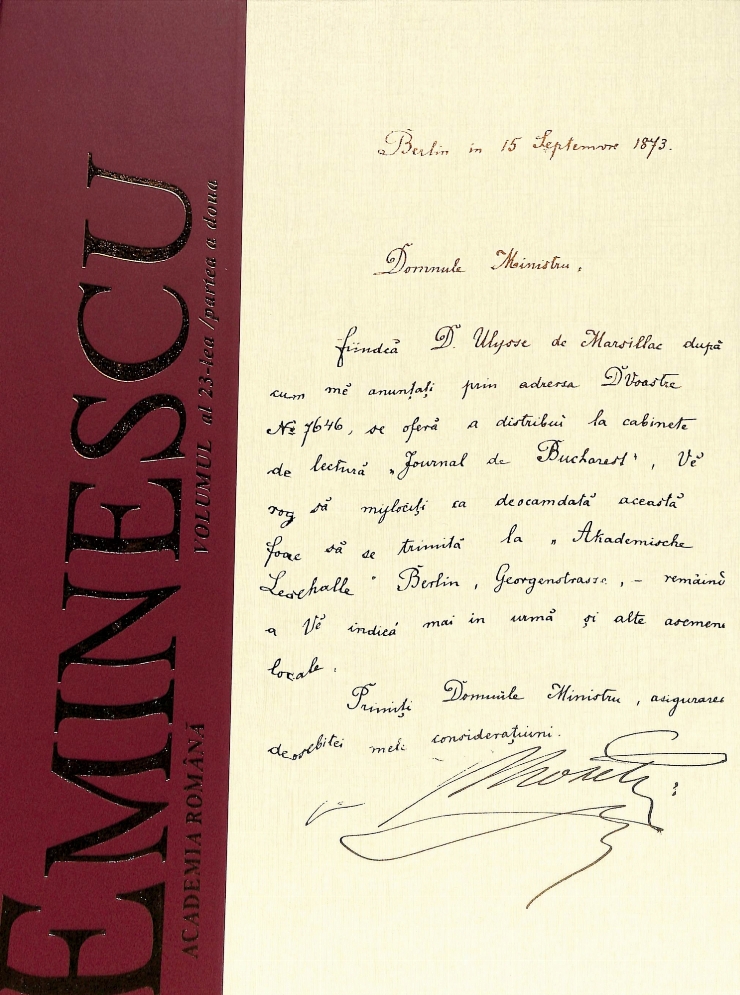 EMINESCU
VOLUMUL al 23-lea /partea a doua
ACADEMIA ROMÂNĂ
Berlin in 15 Septemvre 1873.
Domnule Ministru,
fiindcă D. Ulysse de Marsillac după
cum mĕ anunțați prin adresa DVoastre
No 7646, se oferă a distribui la cabinete
de lectură „Journal de Bucharest", Vĕ
rog să mijlociți ca deocamdată această
foae să se trimită la „Akademische
Lesehalle" Berlin, Georgenstrasse, – remâind
a Vĕ indica mai in urmă și alte asemene
locale.
Primiți Domnule Ministru, asigurarea
deosebitei mele considerațiuni.